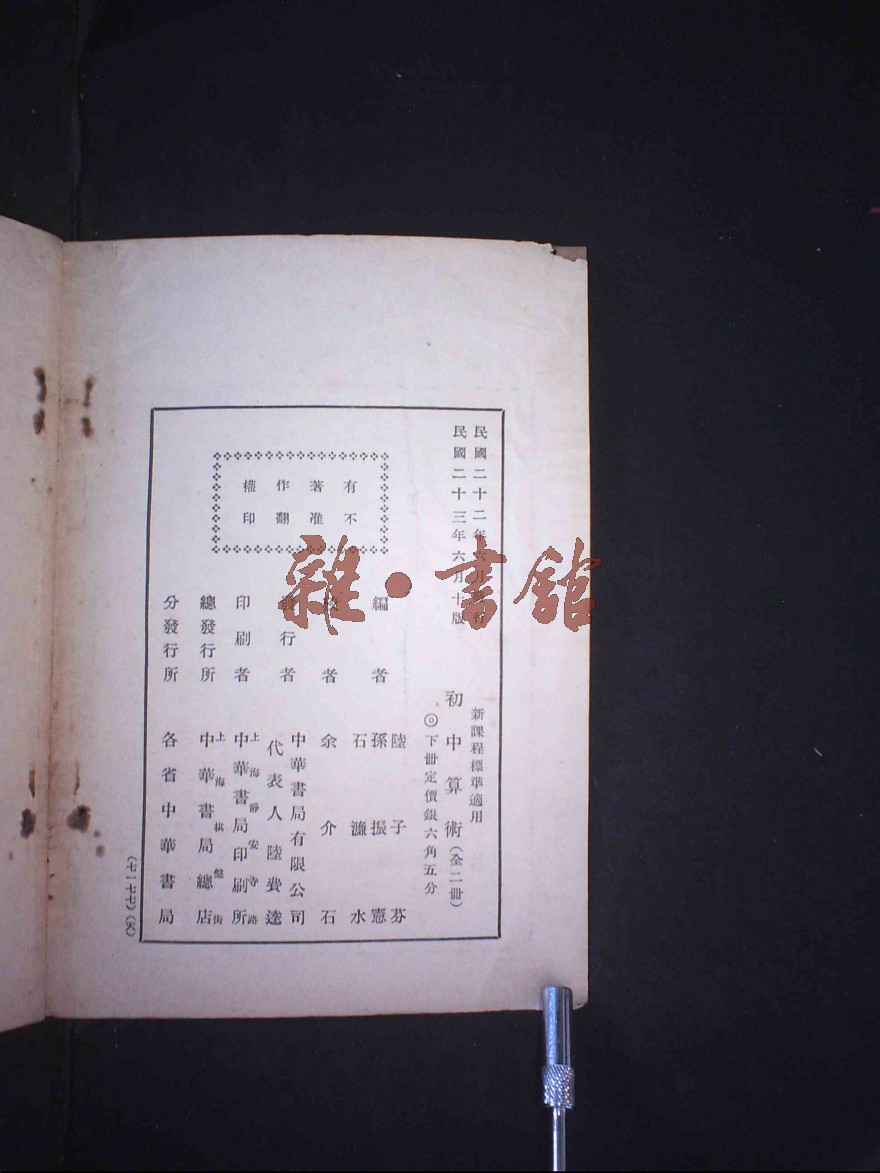 民國二十二年六月發行
民國二十三年六月十版
新課程標準適用
初中算術(全二册)
◎下册定價銀六角五分
有著作權
不准翻印
編者
陸子芬
孫振憲
石濂水
校者
余介石
發行者
中華書局有限公司
代表人陸費逵
印刷者
上海靜安寺路
中華書局印刷所
總發行所
上海棋盤街
中華書局總店
分發行所
各省中華書局
(七一七七)(天)
雜·書館